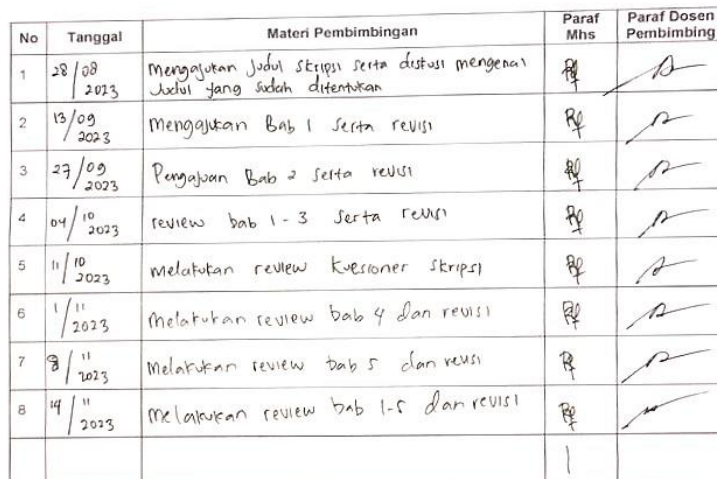 No Tanggal Materi Pembimbingan Paraf Mhs Paraf Dosen Pembimbing
1 28/08 2023 Mengajukan Judul Skripsi serta diskusi mengenai
Judul yang sudah ditentukan
2 13/09 2023 Mengajukan Bab 1 serta revisi
3 27/09 2023 Pengajuan Bab 2 serta revisi
4 04/10 2023 review bab 1-3 serta revisi
5 11/10 2023 melakukan review kuesioner skripsi
6 1/11 2023 melakukan review bab 4 dan revisi
7 8/11 2023 Melakukan review bab 5 dan revisi
8 14/11 2023 melakukan review bab 1-5 dan revisi